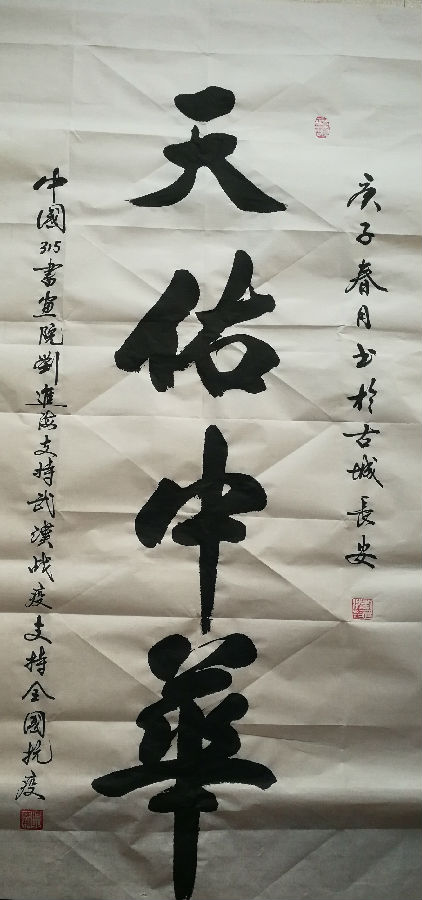 庚子春月书於古城長安
天佑中華
中國315書画院劉進海支持武漢战疫支持全國抗疫